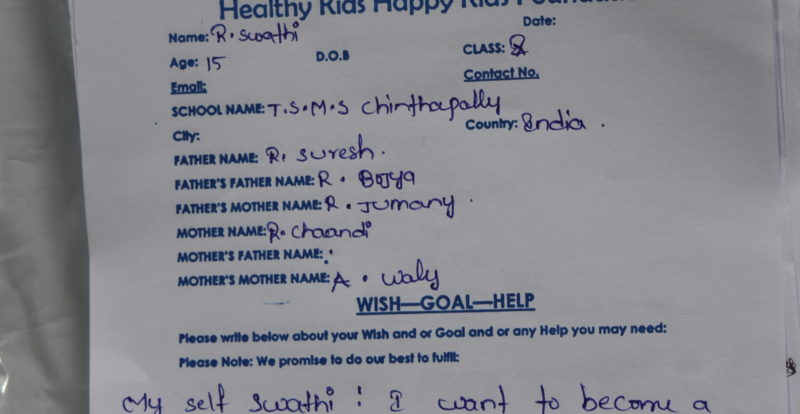 Healthy Kids Happy Kids
Date:
Name: R. Swathi
Age: 15 D.O.B CLASS:
Email: Contact No.
SCHOOL NAME: T.S.M.S Chinthapally
City: Country: India.
FATHER NAME: R. Suresh.
FATHER'S FATHER NAME: R. Bojya
FATHER'S MOTHER NAME: R. Jumany.
MOTHER NAME: R. Chaandi
MOTHER'S FATHER NAME:
MOTHER'S MOTHER NAME: A. waly
WISH—GOAL—HELP
Please write below about your Wish and or Goal and or any Help you may need:
Please Note: We promise to do our best to fulfil:
My self Swathi! I want to become a